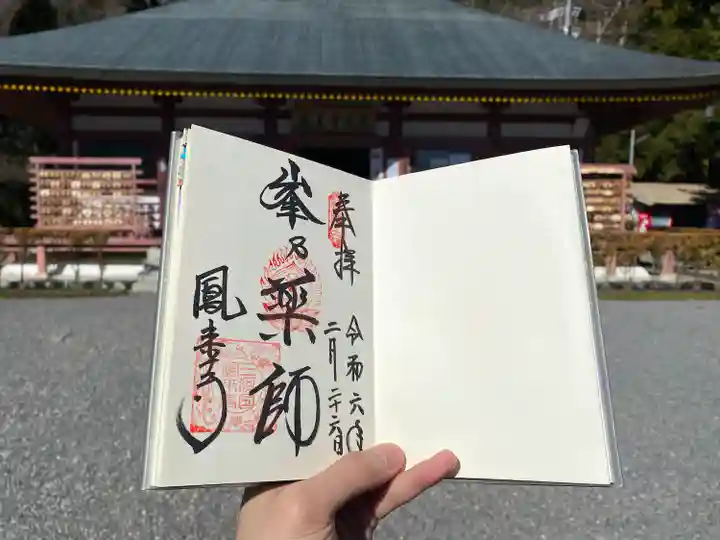 奉拝
令和六年
二月二十六日
峯乃薬師
鳳来寺